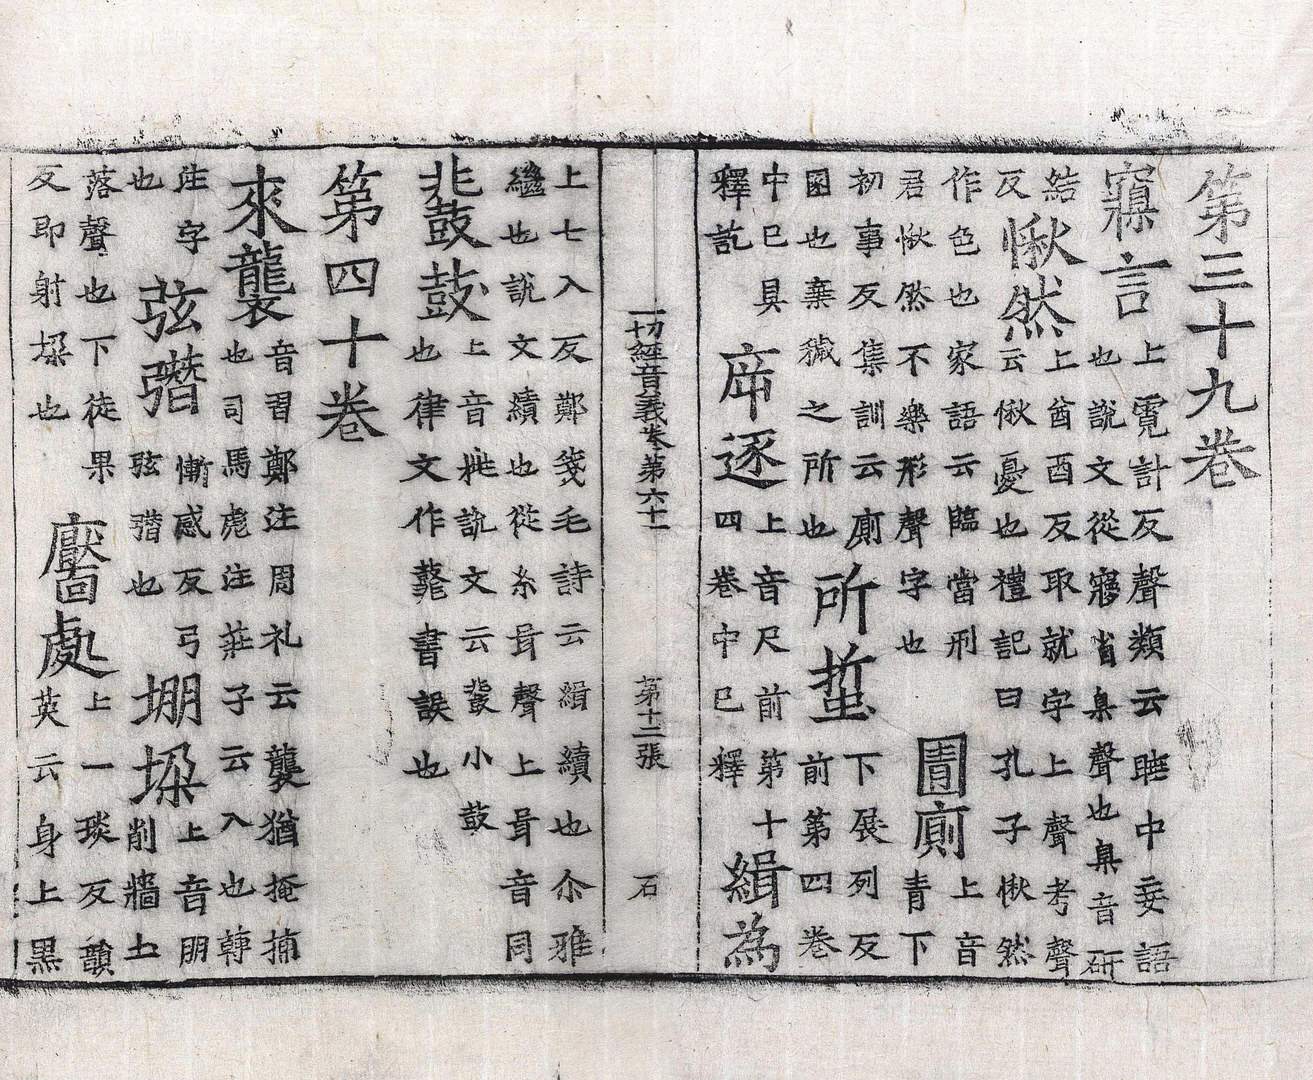 第三十九卷
寱言
上霓計反聲類云睡中妄語
也說文從㝱省臬聲也臬音研
結
反
愀然
上酋酉反取就字上聲考聲
云愀憂也禮記曰孔子愀然
作色也家語云臨當刑
君愀然不樂形聲字也
圊廁
上音
青下
初事反集訓云廁
圂也棄穢之所也
所蜇
下展列反
前第四卷
中已具
釋訖
斥逐
上音尺前第十
四卷中已釋
緝為
一切經音義卷第六十一
第十二張
石
上七入反鄭箋毛詩云緝續也尒雅
繼也說文續也從糸咠聲上咠音同
鼙鼓
上音毗說文云鼙小鼓
也律文作書誤也
第四十卷
來襲
音習鄭注周礼云襲猶掩捕
也司馬彪注莊子云入也轉
注字
也
弦
慚感反弓
弦也
堋垛
上音朋
削牆土
落聲也下徒果
反即射垛也
黶處
上一琰反韻
英云身上黑